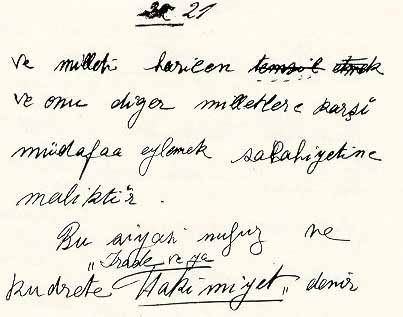 21
ve milleti haricen temsil etmek
ve onu diğer milletlere karşı
müdafaa eylemek salahiyetine
maliktir.
Bu siyasi nufuz ve
„ İrade ve ya
kudrete Hakimiyet „ denir